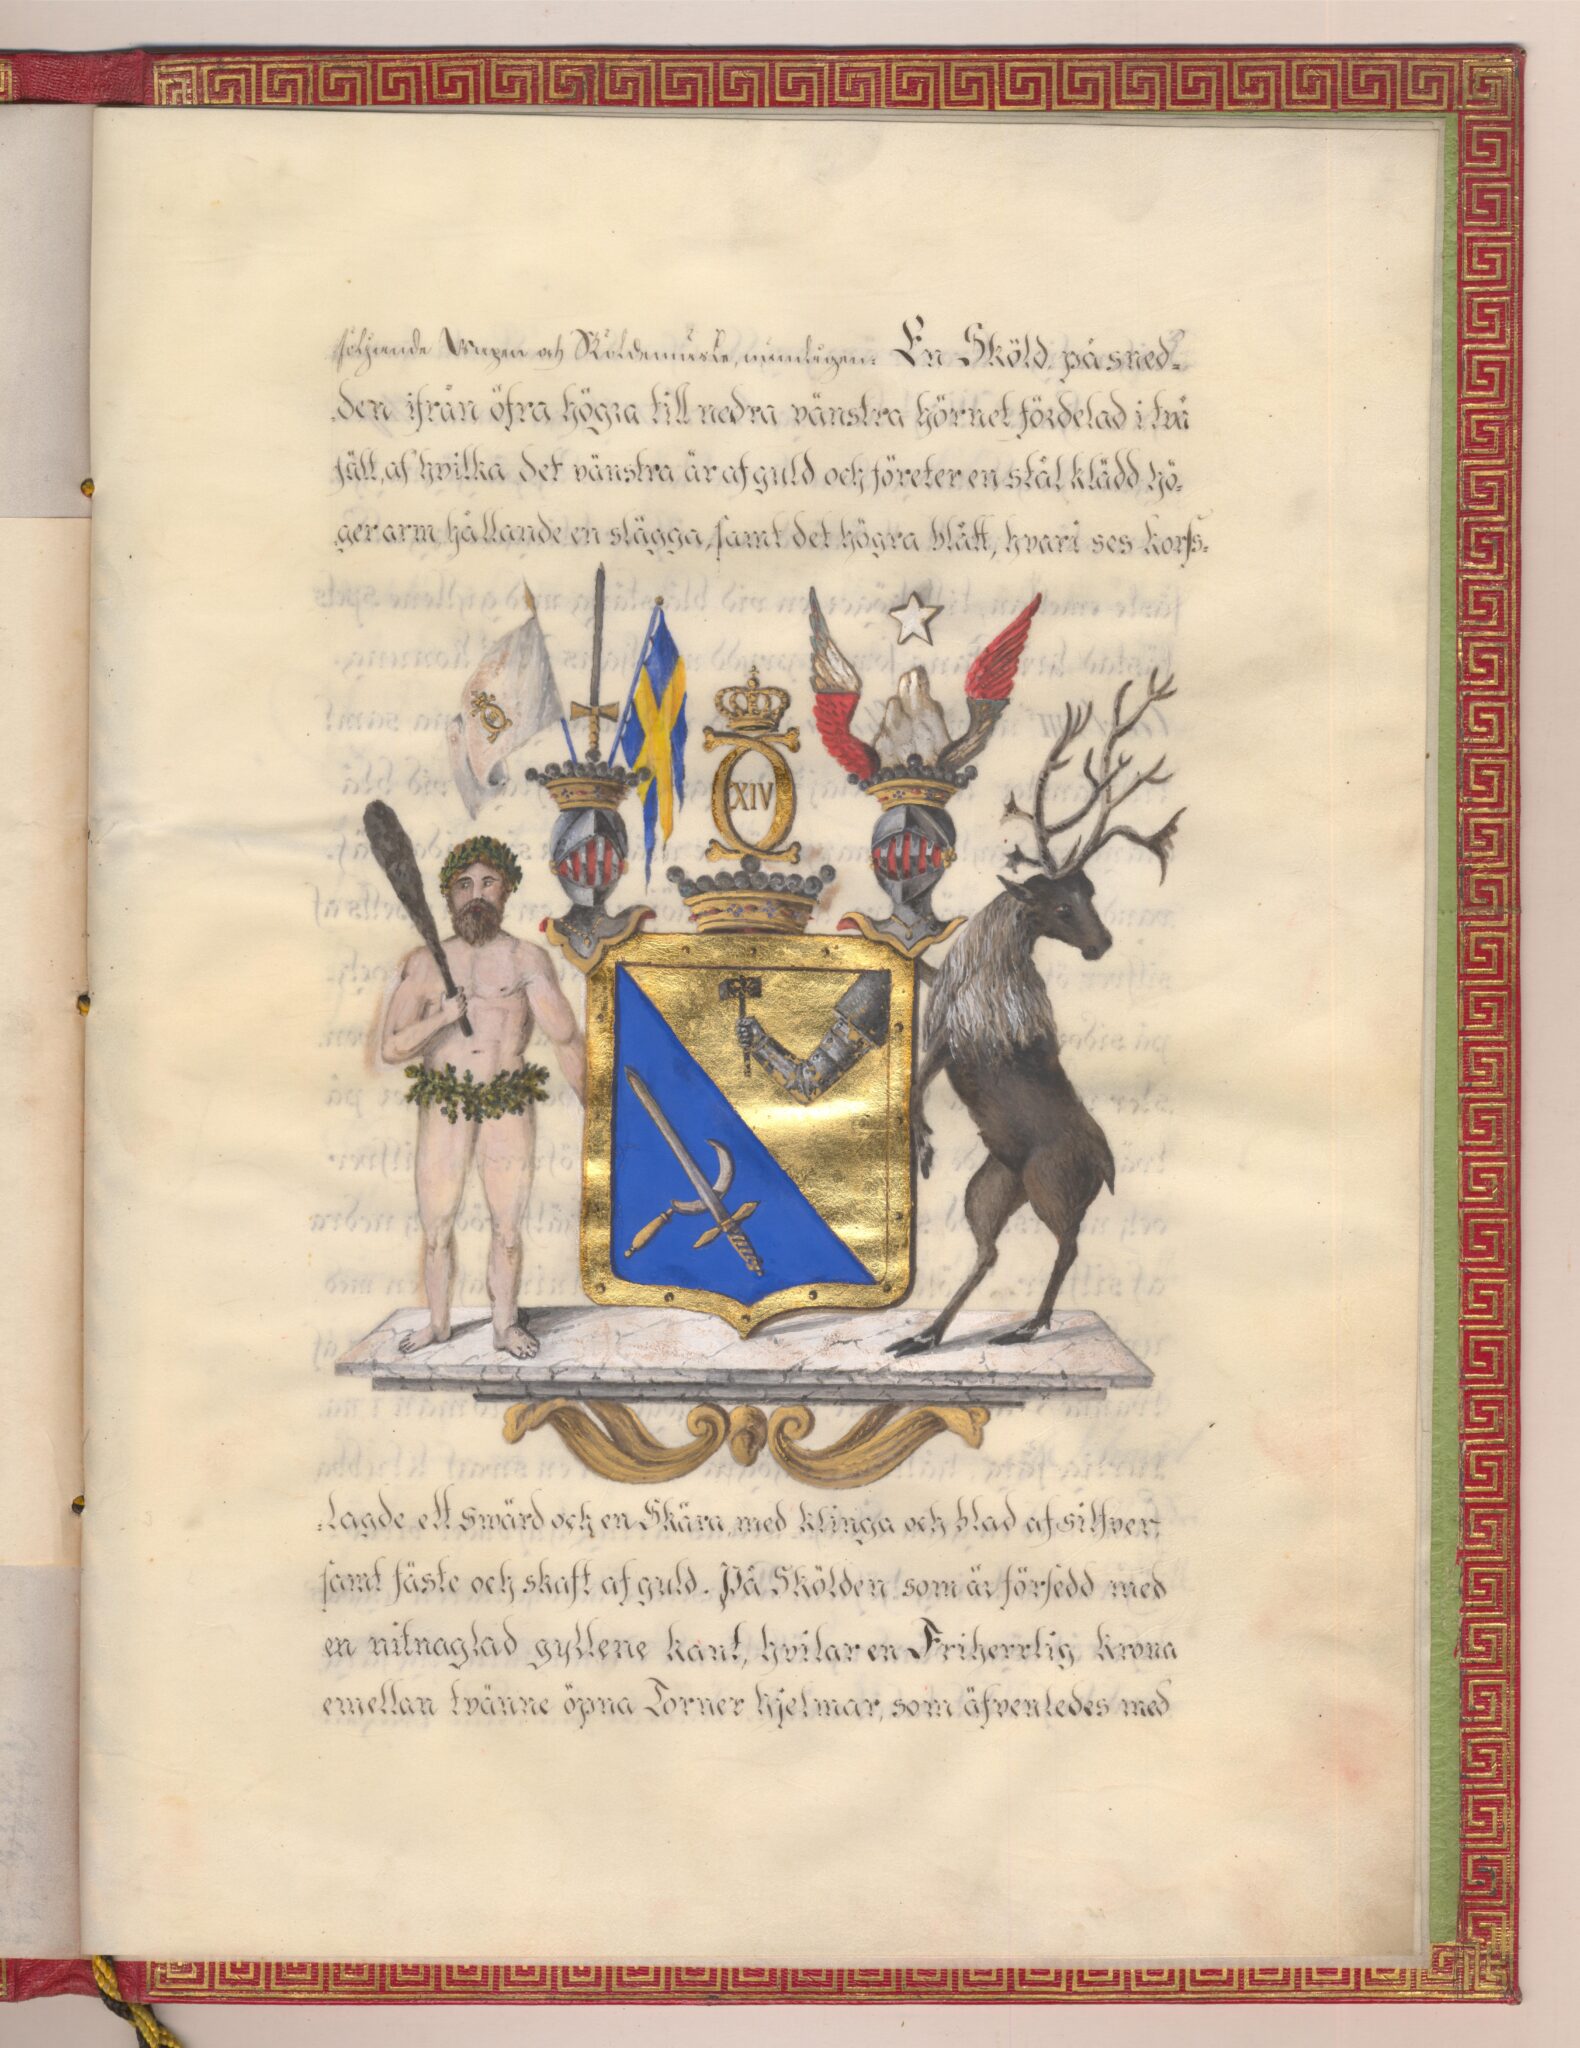 följande Wapen och Sköldemärke, nemligen: En Sköld, på sned-
den ifrån öfra högra till nedra vänstra hörnet fördelad i två
fält, af hvilka det vänstra är af guld och företer en stål klädd hö-
ger arm hållande en slägga, samt det högra blått, hvari ses kors-
XIV
-lagde ett swärd och en Skära, med klinga och blad af silfver,
samt fäste och skaft af guld. På Skölden som är försedd med
en nitnaglad gyllene kant, hvilar en Friherrlig Krona
emellan tvänne öpna Torner hjelmar, som äfvenledes med